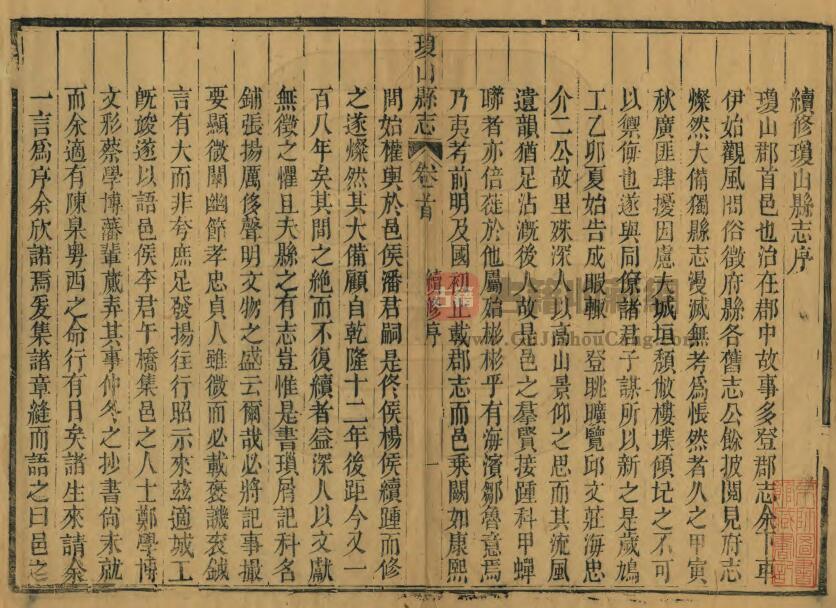 續修瓊山縣志序
瓊山郡首邑也泊在郡中故事多登郡志余下車
伊始觀風問俗徵府縣各舊志公餘披閱見府志
燦然大備獨縣志漫滅無考爲悵然者久之甲寅
秋廣匪肆擾因慮大城垣頹敝樓堞傾圮之不可
以禦侮也遂與同僚諸君子謀所以新之是歲鳩
工乙卯夏始告成暇輙一登眺曠覽邱文莊海忠
介二公故里殊深人以高山景仰之思而其流風
遺韻猶足沾漑後人故是邑之羣賢接踵科甲蟬
聯者亦倍蓰於他屬殆彬彬乎有海濱鄒魯意焉
乃夷考前明及國初止載郡志而邑乘闕如康熙
瓊山縣志
卷首
續修序
一
間始權輿於邑侯潘君嗣是佟侯楊侯續踵而修
之遂燦然其大備顧自乾隆十二年後距今又一
百八年矣其間之絶而不復續者益深人以文獻
無徵之懼且夫縣之有志豈惟是書瑣屑記科名
鋪張揚厲侈聲明文物之盛云爾哉必將記事撮
要顯微闡幽節孝忠貞人雖微而必載褒譏衮鉞
言有大而非夸庶足發揚往行昭示來茲適城工
旣竣遂以語邑侯李君午橋集邑之人士鄭學博
文彤蔡學博藩輩蕆弄其事仲冬之抄書尙未就
而余適有陳臬粤西之命行有日矣諸生來請余
一言爲序余欣諾焉爰集諸章縫而語之曰邑之
古籍
古籍收藏网
www.GuJiShouCang.com